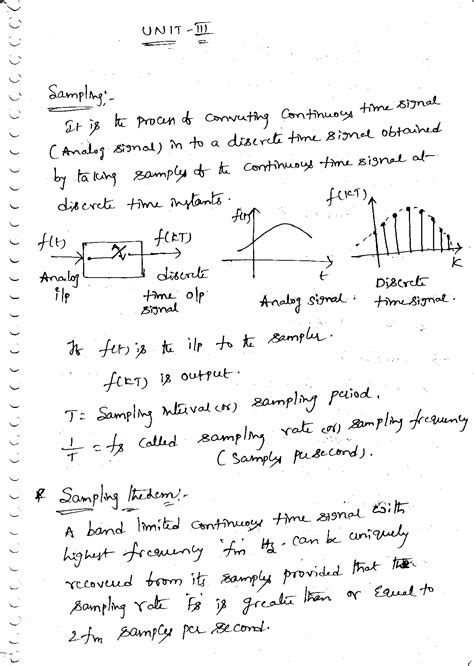 UNIT - III
Sampling:-
It is the process of converting Continuous time signal
(Analog signal) in to a discrete time signal obtained
by taking samples of the continuous time signal at
discrete time instants.
f(t)
f(kT)
Analog
i/p
discrete
time o/p
signal
f(t)
t
Analog signal.
f(kT)
k
Discrete
time signal.
If f(t) is the i/p to the sampler.
f(kT) is output.
T = Sampling interval (or) sampling period.
1/T = fs called sampling rate (or) sampling frequency
(Samples per second).
* Sampling theorem:-
A band limited continuous time signal with
highest frequency 'fm' Hz. can be uniquely
recovered from its samples provided that the
sampling rate Fs is greater than or Equal to
2fm samples per second.